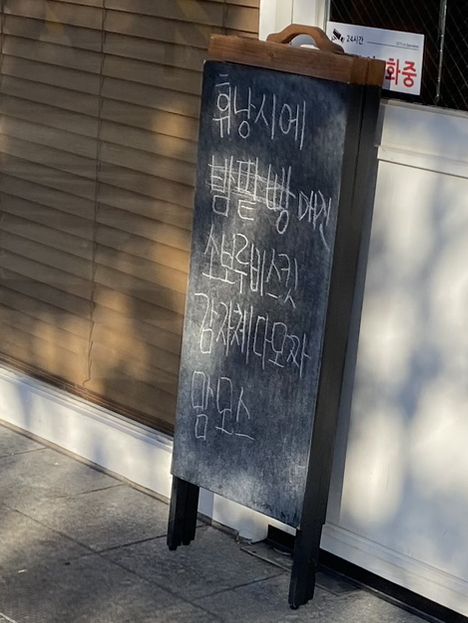 24시간
화중
휘낭시에
밤팥빵 매진
소보루비스킷
감자체다모짜
맘모스